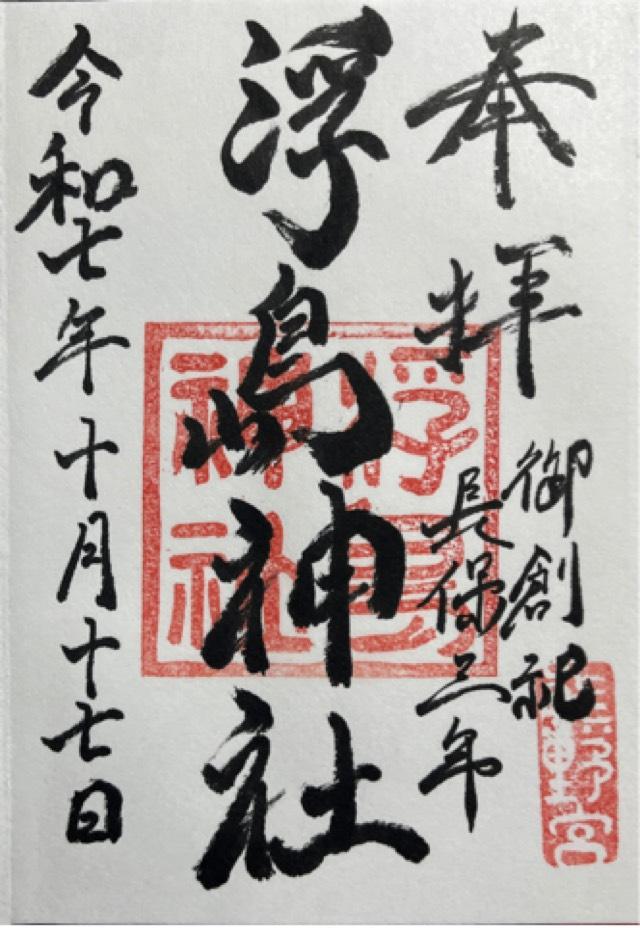 奉拝
御創祀
長保三年
浮嶋神社
令和七年十月十七日
浮島神社